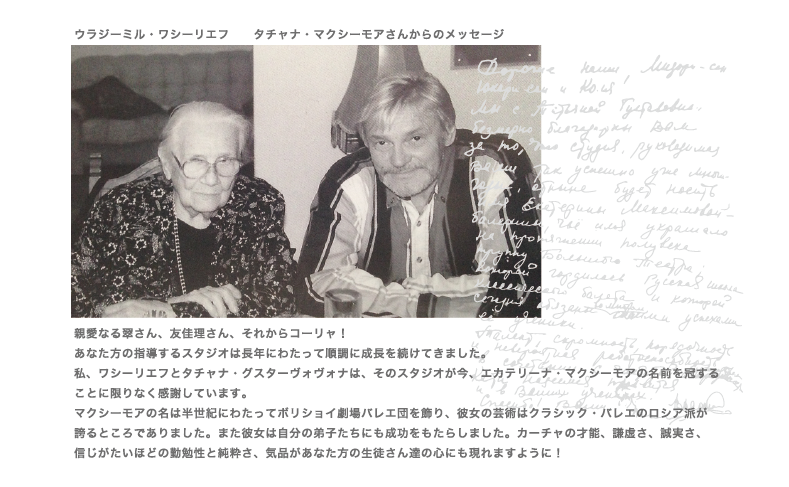 ウラジーミル・ワシーリエフ　　タチャナ・マクシーモアさんからのメッセージ
Дорогие наши, Мидори-сан
Юкари-сан и Коля
Мы с Татьяной Густавовно-
безмерно благодарны Вам
за то, что студия, руководимая
Вами так успешно уже
отныне будет носить
имя Екатерины Максимовой-
балерины, чьё имя украшало
на протяжении полувека
труппу Большого Театра,
которой гордилась Русская школа
классического балета и которой
親愛なる翠さん、友佳理さん、それからコーリャ！
あなた方の指導するスタジオは長年にわたって順調に成長を続けてきました。
私、ワシーリエフとタチャナ・グスターヴォヴォナは、そのスタジオが今、エカテリーナ・マクシーモアの名前を冠する
ことに限りなく感謝しています。
マクシーモアの名は半世紀にわたってボリショイ劇場バレエ団を飾り、彼女の芸術はクラシック・バレエのロシア派が
誇るところでありました。また彼女は自分の弟子たちにも成功をもたらしました。カーチャの才能、謙虚さ、誠実さ、
信じがたいほどの勤勉性と純粋さ、気品があなた方の生徒さん達の心にも現れますように！